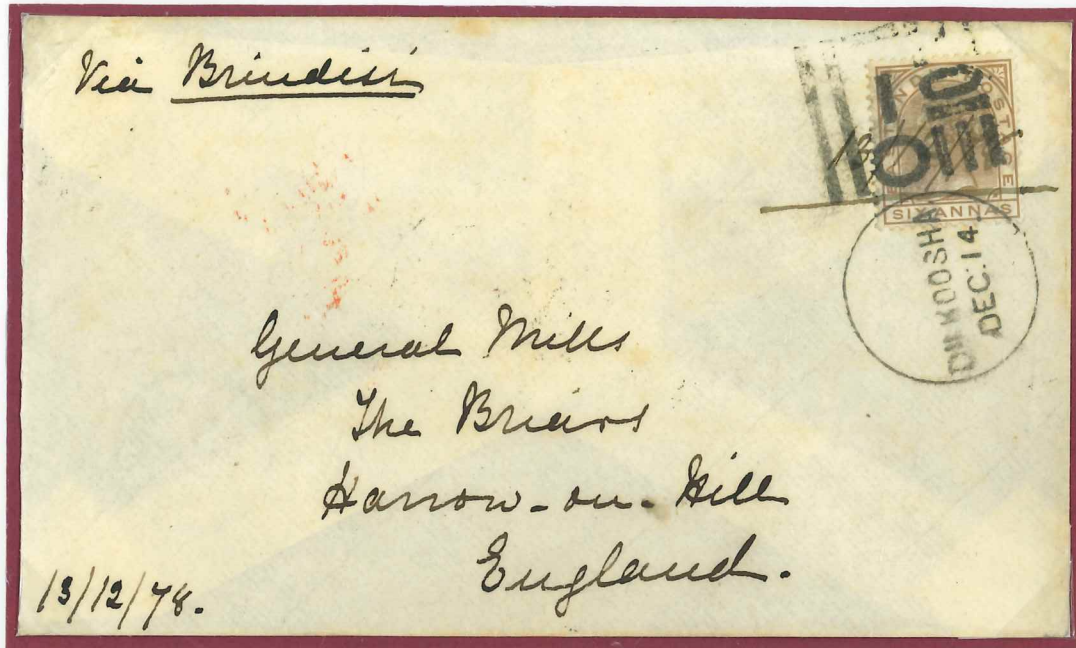 Via Brindisi
INDIA POSTAGE
SIX ANNAS
DILKOOSHA
DEC:14
General Mills
The Briars
Harrow-on-Hill
England.
13/12/78.